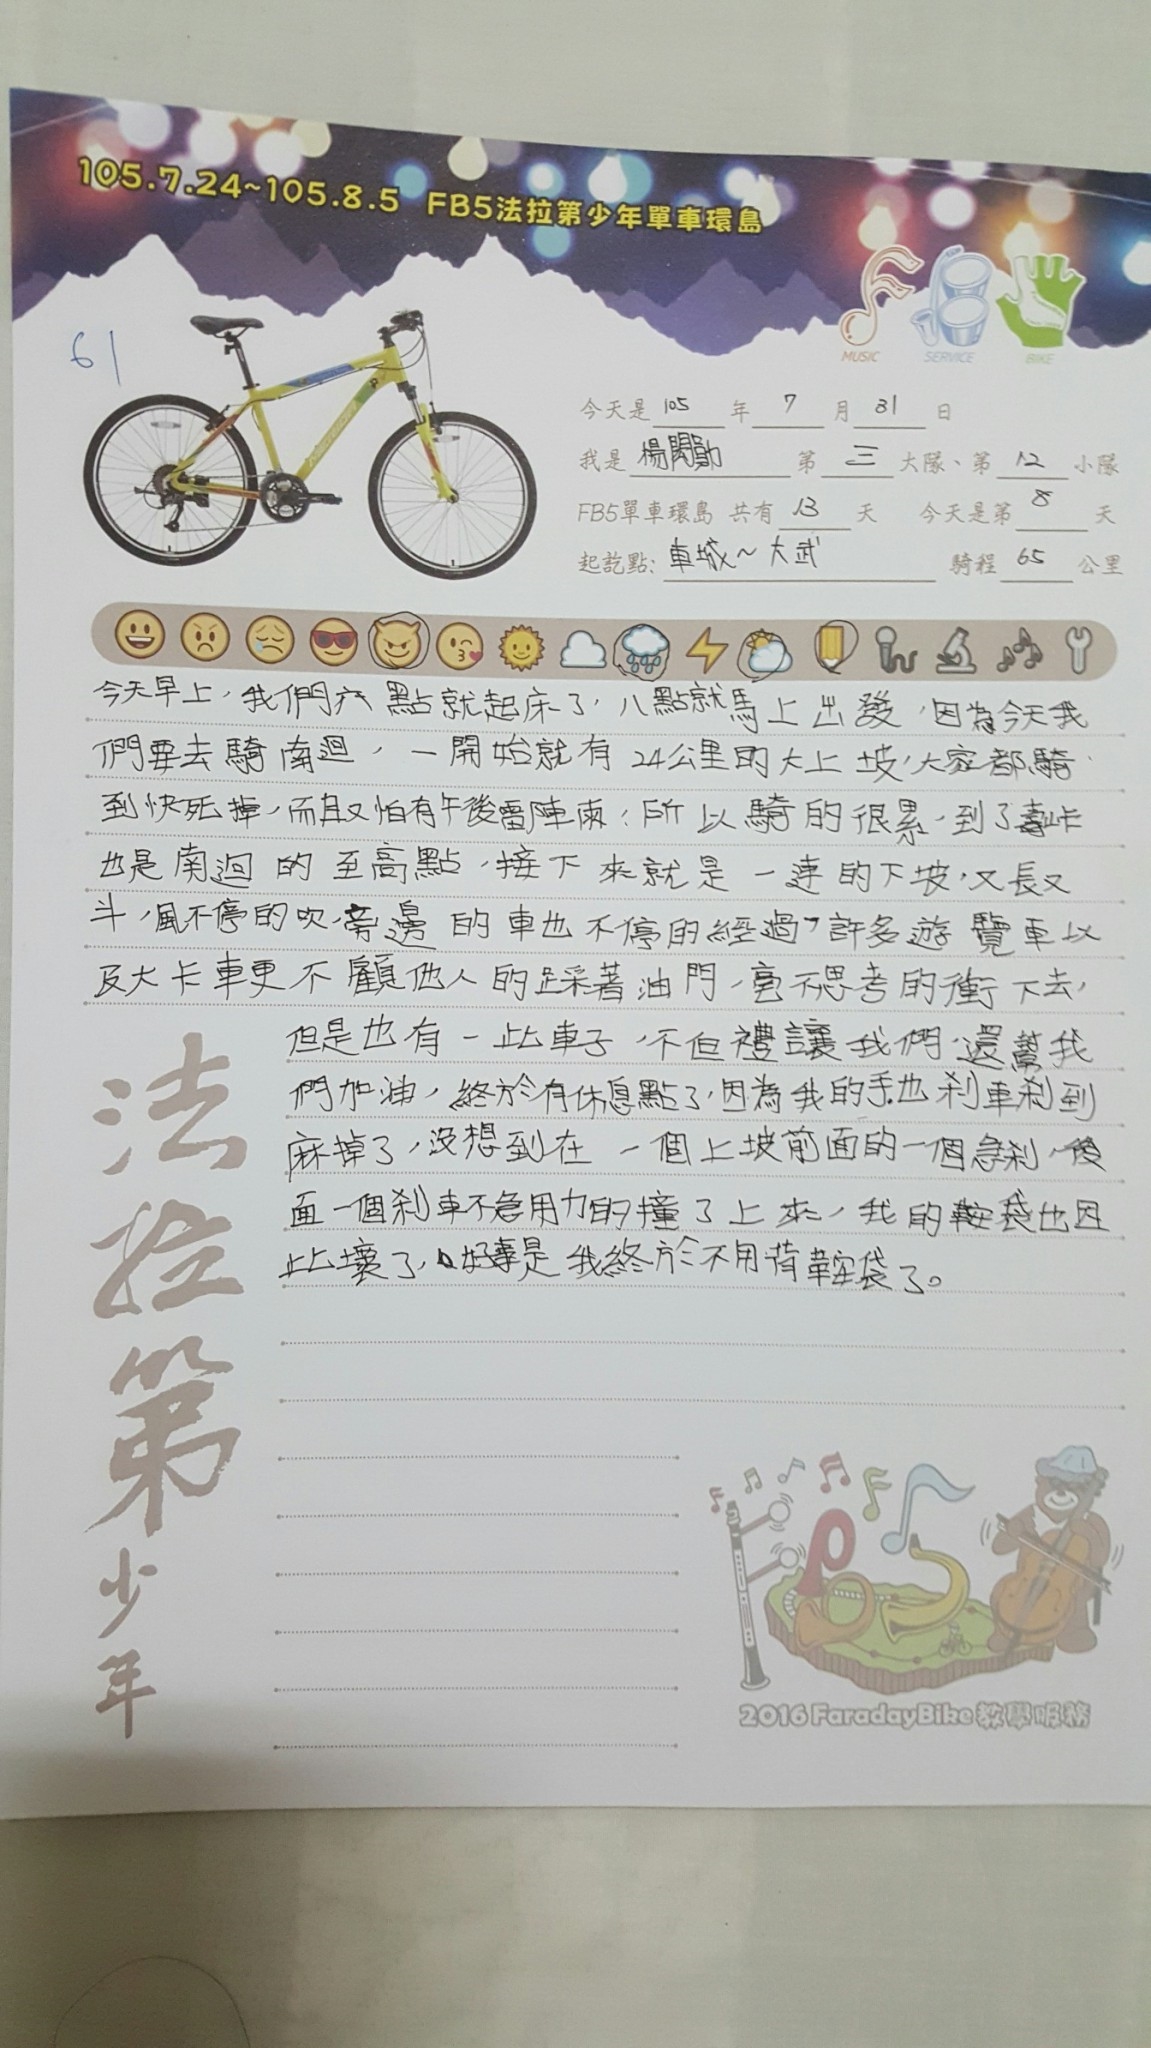 105.7.24~105.8.5 FB5法拉第少年單車環島
MUSIC SERVICE BIKE
61
今天是 105 年 7 月 31 日
我是 楊閔勛 第 三 大隊、第 12 小隊
FB5單車環島 共有 13 天 今天是第 8 天
起訖點: 車城~大武 騎程 65 公里
今天早上，我們六點就起床了，八點就馬上出發，因為今天我
們要去騎南迴，一開始就有24公里的大上坡，大家都騎
到快死掉，而且又怕有午後雷陣雨，所以騎的很累，到了壽峠
也是南迴的至高點，接下來就是一連的下坡，又長又
斗，風不停的吹，旁邊的車也不停的經過，許多遊覽車以
及大卡車更不顧他人的踩著油門，毫不思考的衝下去，
但是也有一些車子，不但禮讓我們，還幫我
們加油，終於有休息點了，因為我的手也剎車剎到
麻掉了，沒想到在一個上坡前面的一個急剎，後
面一個剎車不急用力的撞了上來，我的鞍袋也因
此壞了，好事是我終於不用背鞍袋了。
法拉第少年
2016 FaradayBike 教學服務